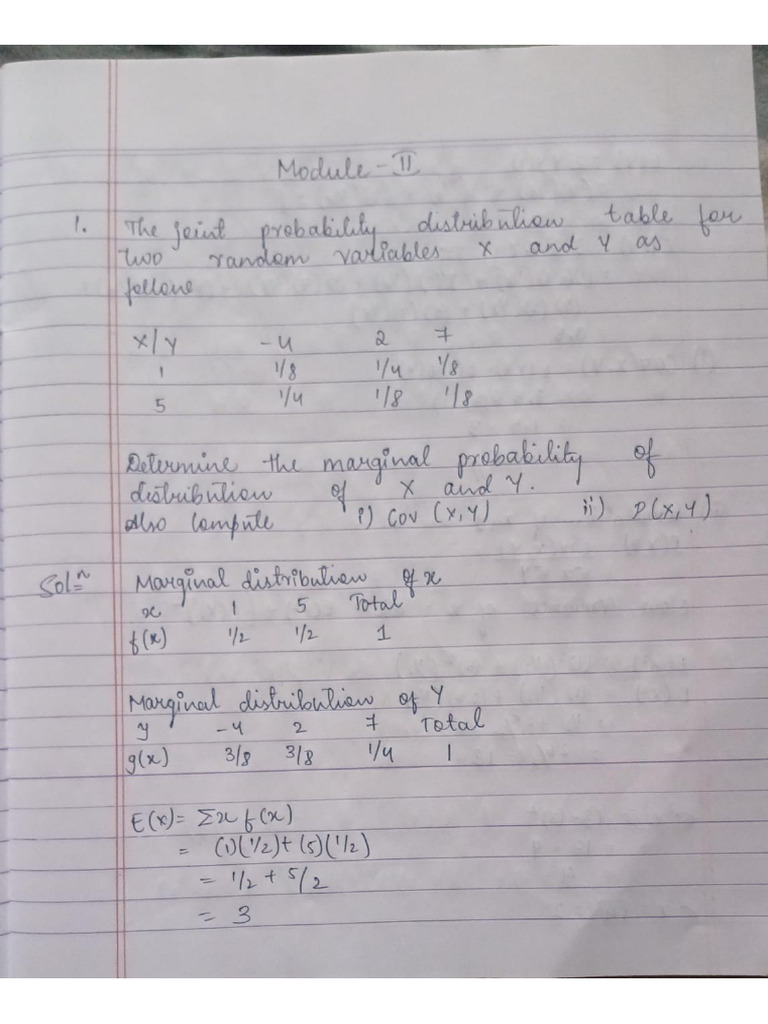 Module - II
1. The joint probability distribution table for
two random variables X and Y as
follows
X/Y -4 2 7
1 1/8 1/4 1/8
5 1/4 1/8 1/8
Determine the marginal probability of
distribution of X and Y.
Also compute i) Cov (X,Y) ii) P(X,Y)
Solⁿ Marginal distribution of x
x 1 5 Total
f(x) 1/2 1/2 1
Marginal distribution of Y
y -4 2 7 Total
g(x) 3/8 3/8 1/4 1
E(x) = Σx f(x)
= (1)(1/2)+(5)(1/2)
= 1/2 + 5/2
= 3